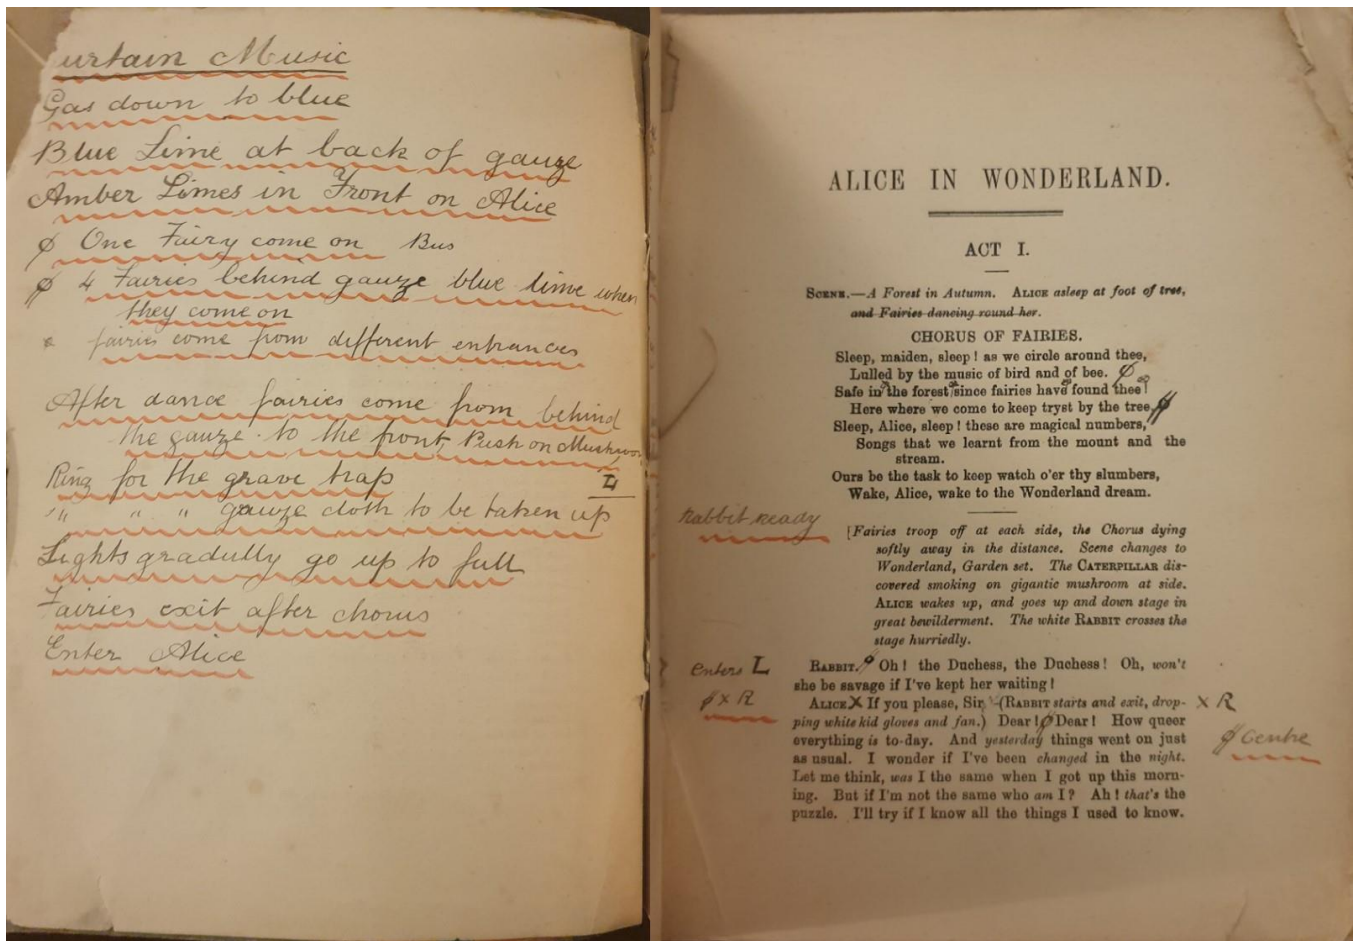 urtain Music
Gas down to blue
Blue Lime at back of gauze
Amber Limes in Front on Alice
φ One Fairy come on Bus
φ 4 Fairies behind gauze blue lime when
they come on
× fairies come from different entrances
After dance fairies come from behind
the gauze to the front, Push on Mushroo
Ring for the grave trap L
" " " gauze cloth to be taken up
Lights gradully go up to full
Fairies exit after chorus
Enter Alice
ALICE IN WONDERLAND.
ACT I.
SCENE.—A Forest in Autumn. ALICE asleep at foot of tree,
and Fairies dancing round her.
CHORUS OF FAIRIES.
Sleep, maiden, sleep! as we circle around thee,
Lulled by the music of bird and of bee. φ
Safe in the forest since fairies have found thee
Here where we come to keep tryst by the tree, φ
Sleep, Alice, sleep! these are magical numbers,
Songs that we learnt from the mount and the
stream.
Ours be the task to keep watch o'er thy slumbers,
Wake, Alice, wake to the Wonderland dream.
Rabbit ready
[Fairies troop off at each side, the Chorus dying
softly away in the distance. Scene changes to
Wonderland, Garden set. The CATERPILLAR dis-
covered smoking on gigantic mushroom at side.
ALICE wakes up, and goes up and down stage in
great bewilderment. The white RABBIT crosses the
stage hurriedly.
enters L RABBIT. φ Oh! the Duchess, the Duchess! Oh, won't
she be savage if I've kept her waiting!
φ x R ALICE X If you please, Sir—(RABBIT starts and exit, drop- X R
ping white kid gloves and fan.) Dear! φ Dear! How queer
everything is to-day. And yesterday things went on just φ Centre
as usual. I wonder if I've been changed in the night.
Let me think, was I the same when I got up this morn-
ing. But if I'm not the same who am I? Ah! that's the
puzzle. I'll try if I know all the things I used to know.